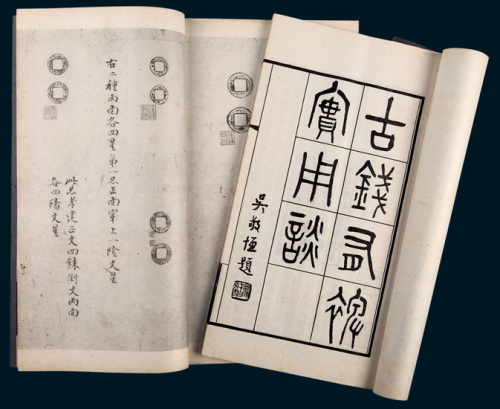 古錢有裨
實用談
吳敬恆題
右二種兩面各四星第一品正面穿上一陰文星
此品孝建正文四銖倒文兩面
各四陽文星